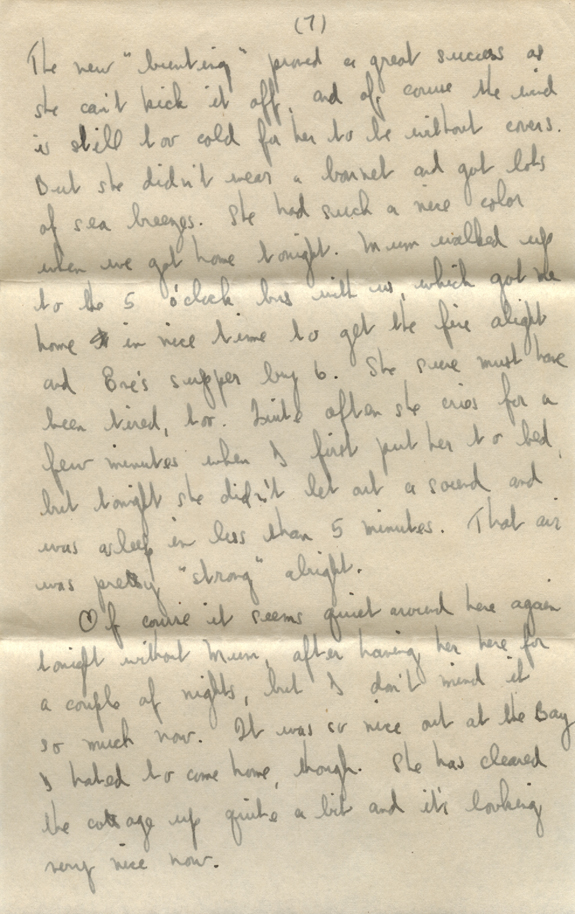 (7)
The new "bunting" proved a great success as
she can't kick it off, and of course the wind
is still too cold for her to be without covers.
But she didn't wear a bonnet and got lots
of sea breezes. She had such a nice color
when we got home tonight. Mum walked up
to the 5 o'clock bus with us, which got me
home in nice time to get the fire alight
and Eve's supper by 6. She sure must have
been tired, too. Quite often she cries for a
few minutes when I first put her to bed,
but tonight she didn't let out a sound and
was asleep in less than 5 minutes. That air
was pretty "strong" alright.
Of course it seems quiet around here again
tonight without Mum, after having her here for
a couple of nights, but I don't mind it
so much now. It was so nice out at the Bay
I hated to come home, though. She has cleared
the cottage up quite a bit and it's looking
very nice now.